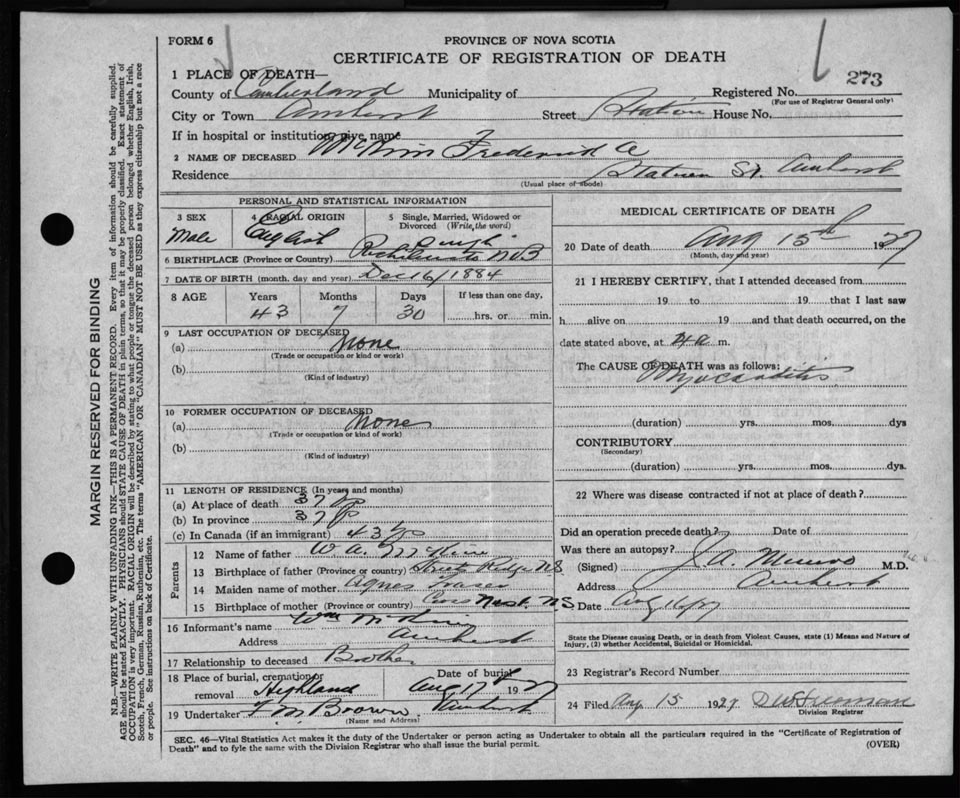 FORM 6
PROVINCE OF NOVA SCOTIA
CERTIFICATE OF REGISTRATION OF DEATH
273
1 PLACE OF DEATH—
County of Cumberland Municipality of Registered No.
(For use of Registrar General only)
City or Town Amherst Street Station House No.
If in hospital or institution, give name
2 NAME OF DECEASED Frederick A
Residence Station St. Amherst
(Usual place of abode)
PERSONAL AND STATISTICAL INFORMATION
3 SEX Male
4 RACIAL ORIGIN English
5 Single, Married, Widowed or Divorced (Write, the word) Single
6 BIRTHPLACE (Province or Country) Richibucto NB
7 DATE OF BIRTH (month, day and year) Dec 16/1884
8 AGE Years Months Days If less than one day,
43 7 30 hrs. or min.
9 LAST OCCUPATION OF DECEASED
(a) None
(Trade or occupation or kind or work)
(b)
(Kind of industry)
10 FORMER OCCUPATION OF DECEASED
(a) None
(Trade or occupation or kind of work)
(b)
(Kind of industry)
11 LENGTH OF RESIDENCE (In years and months)
(a) At place of death 37 yrs
(b) In province 37 y
(c) In Canada (if an immigrant) 43 yrs
Parents
12 Name of father W. A.
13 Birthplace of father (Province or country) Streets Ridge NS
14 Maiden name of mother Agnes Fraser
15 Birthplace of mother (Province or country) NS
16 Informant's name Wm
Address Amherst
17 Relationship to deceased Brother
18 Place of burial, cremation or removal Highland
Date of burial Aug 17 1927
19 Undertaker F. M. Brown. Amherst
(Name and Address)
MEDICAL CERTIFICATE OF DEATH
20 Date of death Aug 15th 1927
(Month, day and year)
21 I HEREBY CERTIFY, that I attended deceased from
19 to 19 that I last saw
h alive on 19 and that death occurred, on the
date stated above, at 4 a m.
The CAUSE OF DEATH was as follows:
Myocarditis
(duration) yrs. mos. dys
CONTRIBUTORY
(Secondary)
(duration) yrs. mos. dys.
22 Where was disease contracted if not at place of death?
Did an operation precede death? Date of
Was there an autopsy?
(Signed) J. A. Munro M.D.
Address Amherst
Date Aug 16/27
State the Disease causing Death, or in death from Violent Causes, state (1) Means and Nature of
Injury, (2) whether Accidental, Suicidal or Homicidal.
23 Registrar's Record Number
24 Filed Aug 15 1927.
Division Registrar
SEC. 46—Vital Statistics Act makes it the duty of the Undertaker or person acting as Undertaker to obtain all the particulars required in the "Certificate of Registration of
Death" and to fyle the same with the Division Registrar who shall issue the burial permit.
(OVER)
MARGIN RESERVED FOR BINDING
N.B.—WRITE PLAINLY WITH UNFADING INK—THIS IS A PERMANENT RECORD. Every item of information should be carefully supplied.
AGE should be stated EXACTLY. PHYSICIANS should STATE CAUSE OF DEATH in plain terms, so that it may be properly classified. Exact statement of
OCCUPATION is very important. RACIAL ORIGIN will be described by stating to what people or tongue the deceased person belonged whether English, Irish,
Scotch, French, German, Russian, Ruthenian, etc. The terms "AMERICAN" OR "CANADIAN" MUST NOT BE USED as they express citizenship but not a race
or people. See instructions on back of Certificate.